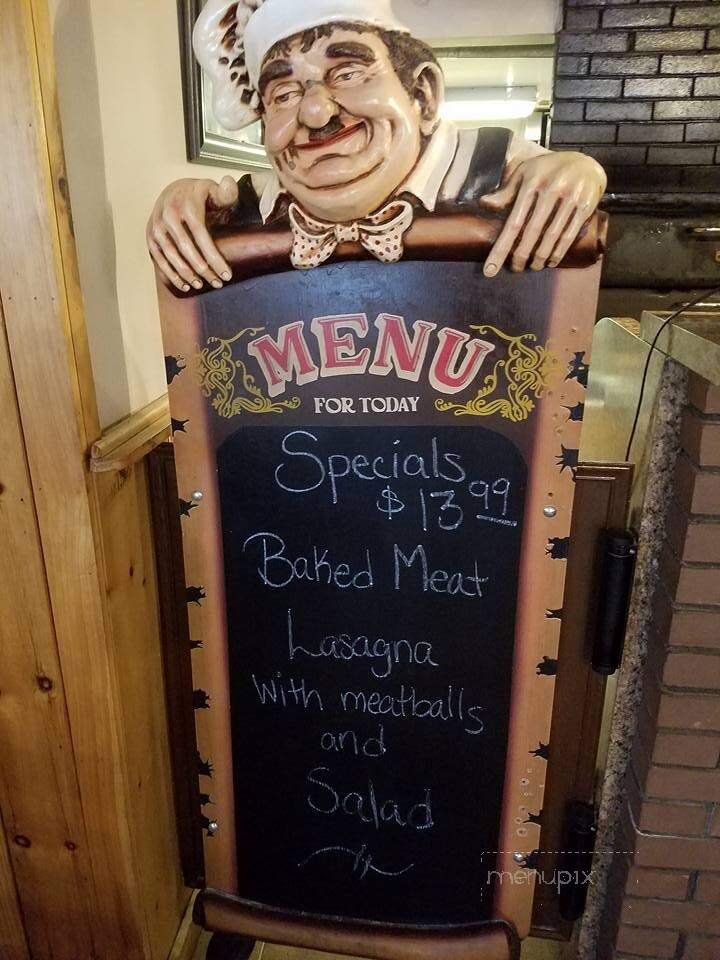 MENU
FOR TODAY
Specials
$13.99
Baked Meat
Lasagna
With meatballs
and
Salad
menupix